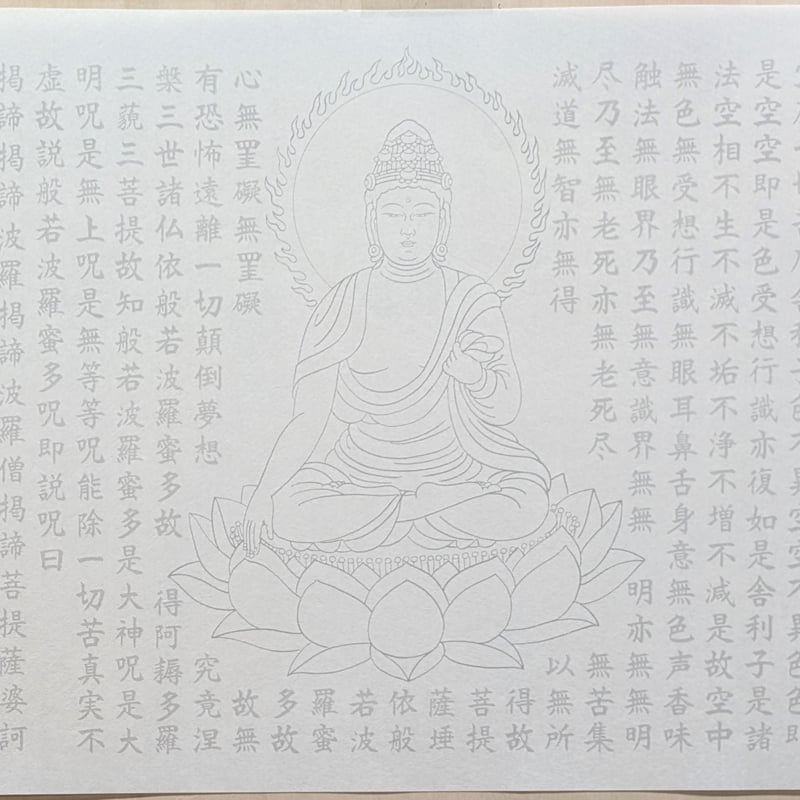 空度一切苦厄舎利子色不異空空不異色色即
是空空即是色受想行識亦復如是舎利子是諸
法空相不生不滅不垢不浄不増不減是故空中
無色無受想行識無眼耳鼻舌身意無色声香味
触法無眼界乃至無意識界無無 明亦無無明
尽乃至無老死亦無老死尽 無苦集
滅道無智亦無得 以無所
得故
菩提
薩埵
依般
若波
羅蜜
多故
心無罣礙無罣礙 故無
有恐怖遠離一切顛倒夢想 究竟涅
槃三世諸仏依般若波羅蜜多故 得阿耨多羅
三藐三菩提故知般若波羅蜜多是大神呪是大
明呪是無上呪是無等等呪能除一切苦真実不
虚故説般若波羅蜜多呪即説呪曰
掲諦掲諦波羅掲諦波羅僧掲諦菩提薩婆訶